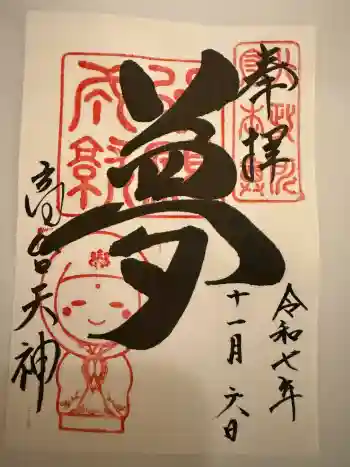 奉拝
夢
高台天神
令和七年
十一月六日